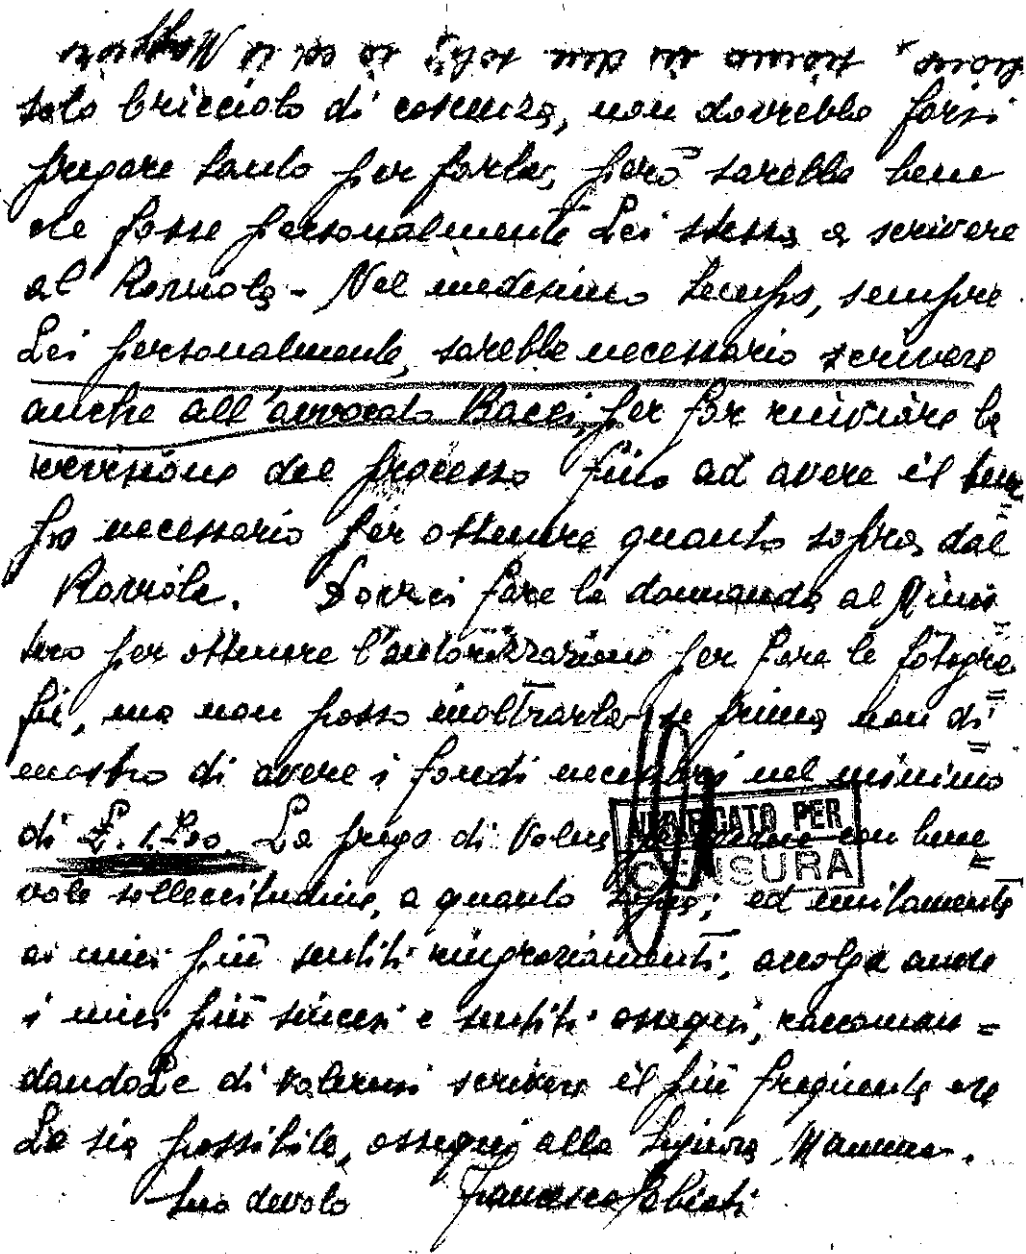 solo bricciolo di coscienza, non dovrebbe farsi
pregare tanto per farlo, però sarebbe bene
che fosse personalmente Lei stessa a scrivere
al - Nel medesimo tempo, sempre
Lei personalmente, sarebbe necessario scrivere
anche all'avvocato Bacci, per far rinviare la
revisione del processo fino ad avere il tem
po necessario per ottenere quanto sopra dal
Dovrei fare la domanda al Mini=
stro per ottenere l'autorizzazione per fare le fotogra=
fie, ma non posso inoltrarla se prima non di=
mostro di avere i fondi necessari nel minimo
di £. La prego di con bene=
vole sollecitudine, a quanto sopra; ed unitamente
ai miei più sentiti ringraziamenti, accolga anche
i miei più sinceri e sentiti ossequi, raccoman=
dandoLe di volermi scrivere il più frequente che
Le sia possibile, ossequi alla Signora Mamma.
Suo devoto Francesco
VERIFICATO PER
CENSURA